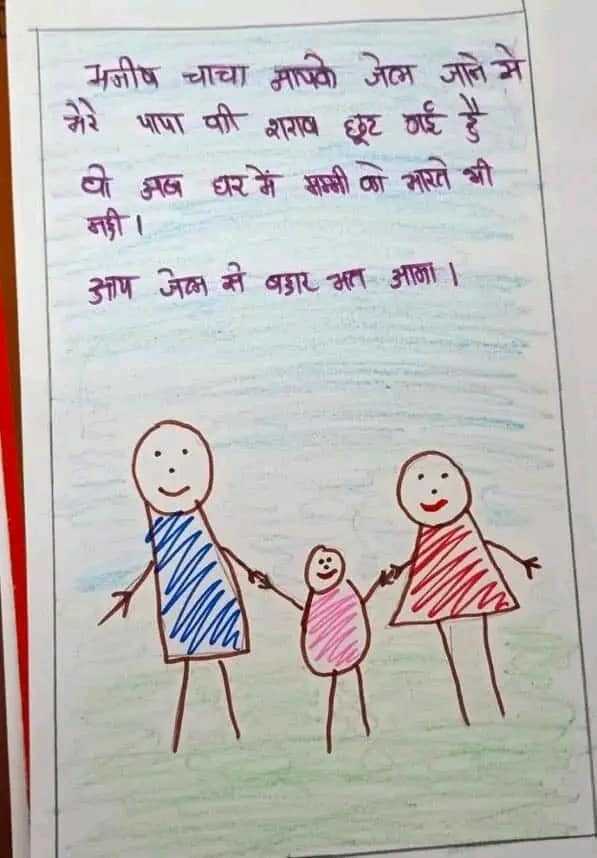 मनीष चाचा आपके जेल जाने से
मेरे पापा की शराब छूट गई है
वो अब घर में मम्मी को मारते भी
नही ।
आप जेल से बहार मत आना ।